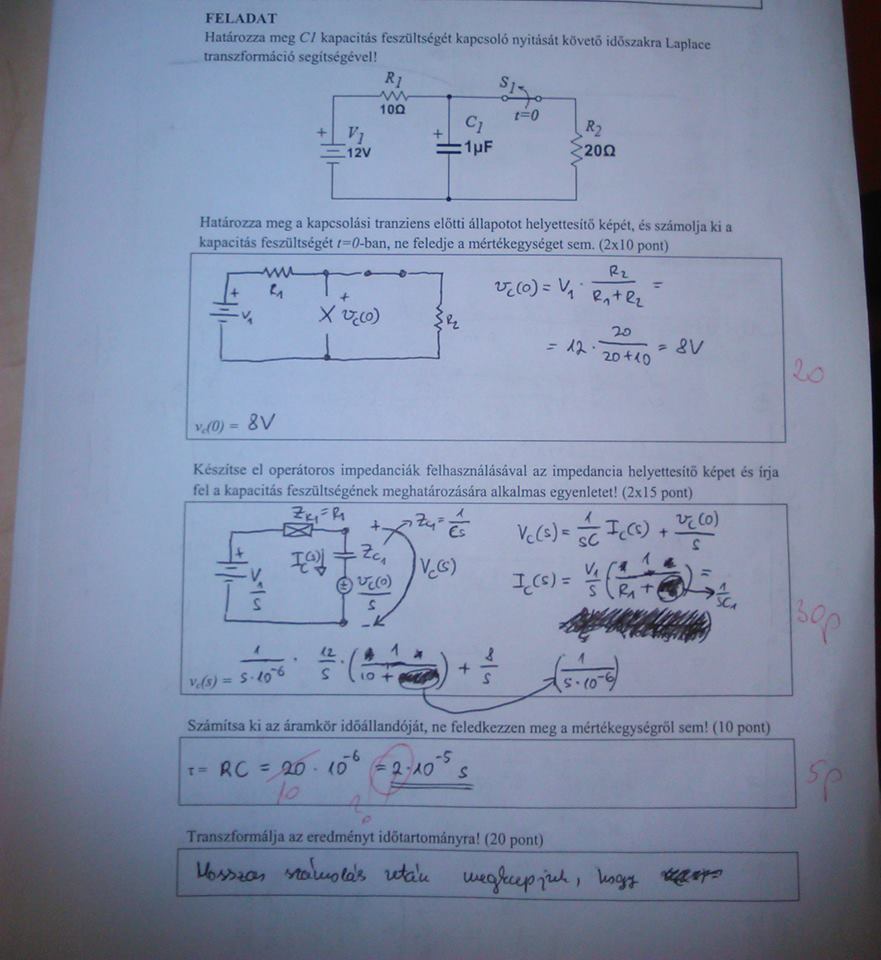 FELADAT
Határozza meg C1 kapacitás feszültségét kapcsoló nyitását követő időszakra Laplace
transzformáció segítségével!
R1
10Ω
S1
t=0
+
V1
12V
+
C1
1µF
R2
20Ω
Határozza meg a kapcsolási tranziens előtti állapotot helyettesítő képét, és számolja ki a
kapacitás feszültségét t=0-ban, ne feledje a mértékegységet sem. (2x10 pont)
R1
+
V1
+
vc(0)
R2
vc(0) = V1 · R2 / (R1 + R2) =
= 12 · 20 / (20+10) = 8V
vc(0) = 8V
20
Készítse el operátoros impedanciák felhasználásával az impedancia helyettesítő képet és írja
fel a kapacitás feszültségének meghatározására alkalmas egyenletet! (2x15 pont)
ZR1 = R1
+
V1/s
Ic(s)
ZC1
vc(0)/s
+
ZC1 = 1/Cs
Vc(s)
-
Vc(s) = 1/sC Ic(s) + vc(0)/s
Ic(s) = V1/s (1 / (R1 + 1/sC1)) =
vc(s) = 1/(s·10^-6) · 12/s · (1 / (10 + (1/(s·10^-6)))) + 8/s
30p
Számítsa ki az áramkör időállandóját, ne feledkezzen meg a mértékegységről sem! (10 pont)
τ = RC = 20 · 10^-6 = 2·10^-5 s
10
?
5p
Transzformálja az eredményt időtartományra! (20 pont)
Hosszas számolás után megkapjuk, hogy